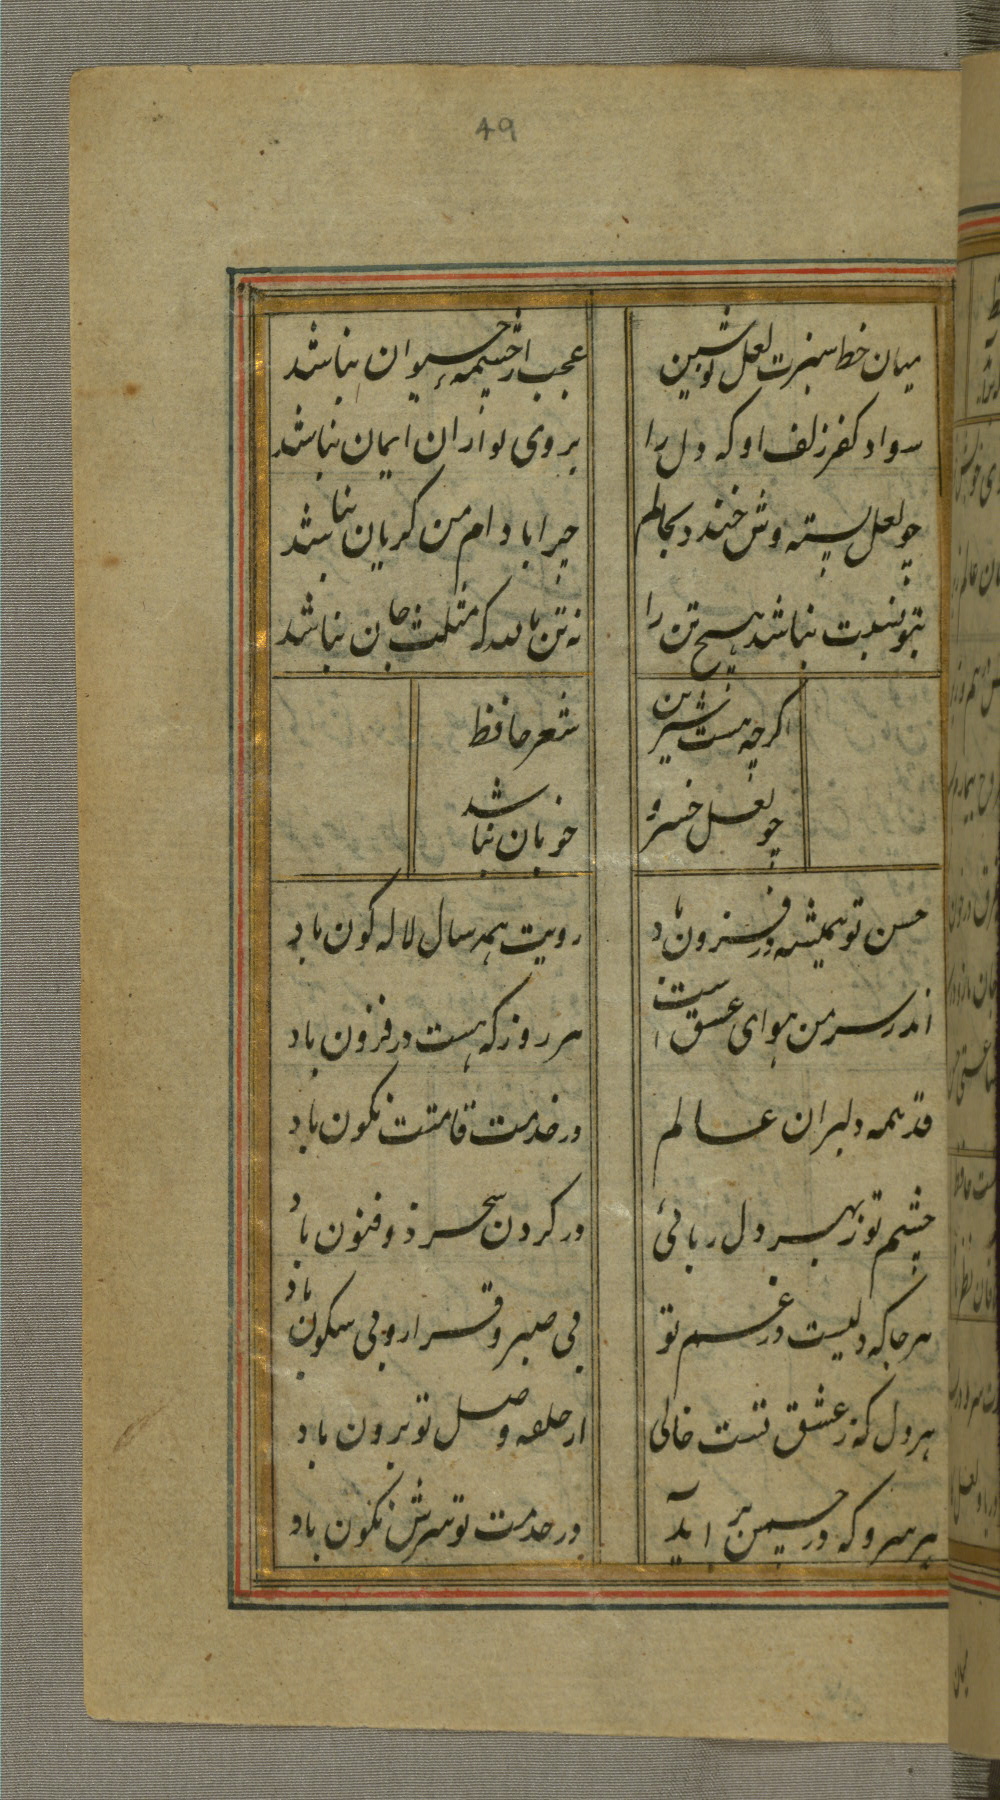 49
میان خط سبزت لعل نوشین
عجب از چشمهٔ حیوان نباشد
سواد کفر زلف او که دل را
بروی تو ازان ایمان نباشد
چو لعل پسته وش خندد بحالم
چرا بادام من کریان نباشد
بتو نسبت نباشد هیچ تن را
نه تن باشد که مثلت جان نباشد
کرچه هست شیرین
شعر حافظ
چو لعل خسرو
خوبان نباشد
حسن تو همیشه در فزون باد
رویت همه سال لاله کون باد
اندر سر من هوای عشق است
هر روز که هست در فزون باد
قد همه دلبران عالم
در خدمت قامتت نکون باد
چشم تو ز بهر دل ربائی
در کردن سحر ذو فنون باد
هر جا که دلیست در غم تو
بی صبر و قرار و بی سکون باد
هر دل که ز عشق تست خالی
از حلقه وصل تو برون باد
هر سرو که در چمن بر آید
در خدمت تو سرش نکون باد